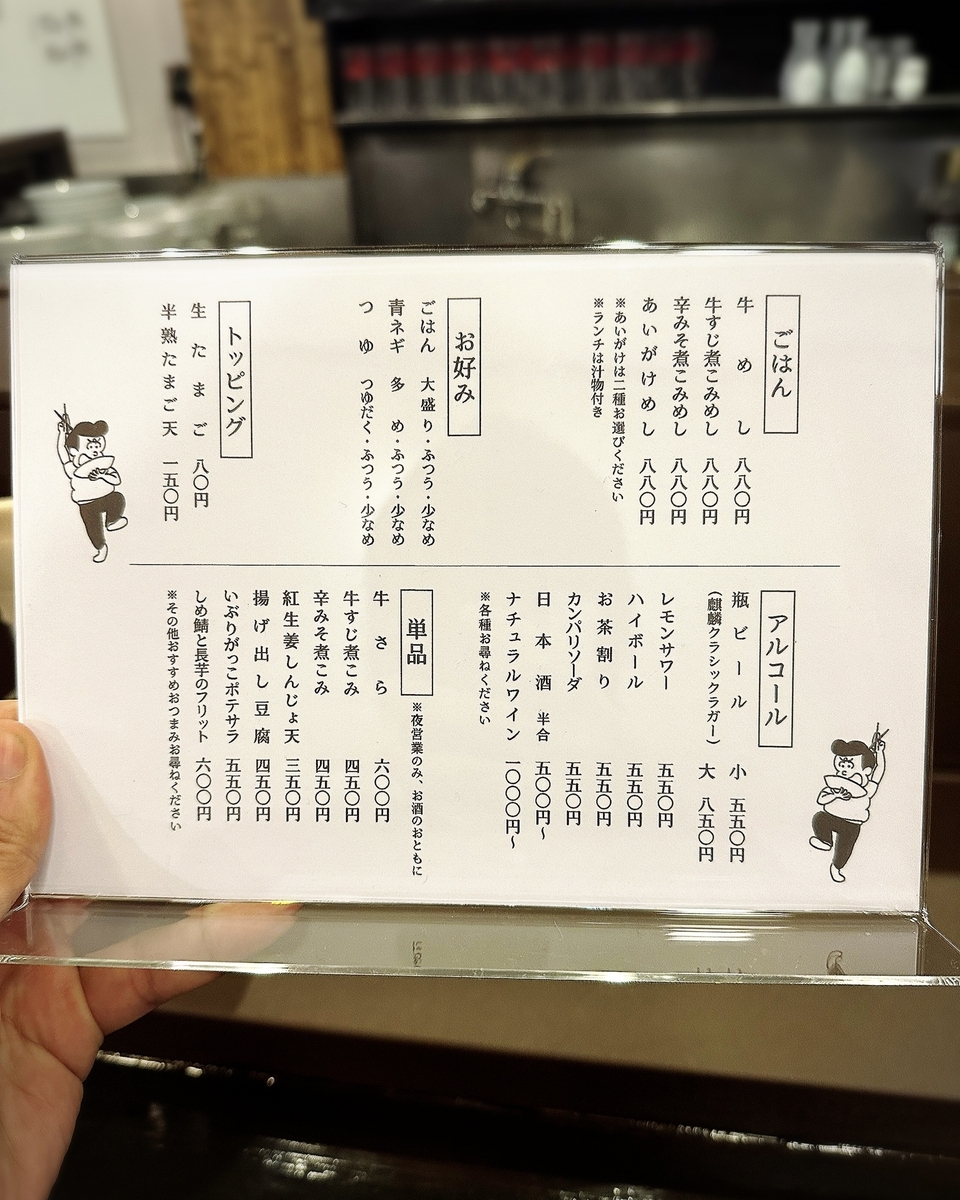 ごはん
牛めし 八八〇円
牛すじ煮こみめし 八八〇円
辛みそ煮こみめし 八八〇円
あいがけめし 八八〇円
※あいがけは二種お選びください
※ランチは汁物付き
お好み
ごはん 大盛り・ふつう・少なめ
青ネギ 多め・ふつう・少なめ
つゆ つゆだく・ふつう・少なめ
トッピング
生たまご 八〇円
半熟たまご天 一五〇円
アルコール
瓶ビール 小 五五〇円
(麒麟クラシックラガー) 大 八五〇円
レモンサワー 五五〇円
ハイボール 五五〇円
お茶割り 五五〇円
カンパリソーダ 五五〇円
日本酒 半合 五〇〇円〜
ナチュラルワイン 一〇〇〇円〜
※各種お尋ねください
単品 ※夜営業のみ、お酒のおともに
牛さら 六〇〇円
牛すじ煮こみ 四五〇円
辛みそ煮こみ 四五〇円
紅生姜しんじょ天 三五〇円
揚げ出し豆腐 四五〇円
いぶりがっこポテサラ 五五〇円
しめ鯖と長芋のフリット 六〇〇円
※その他おすすめおつまみお尋ねください